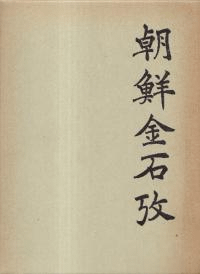 朝鮮金石攷